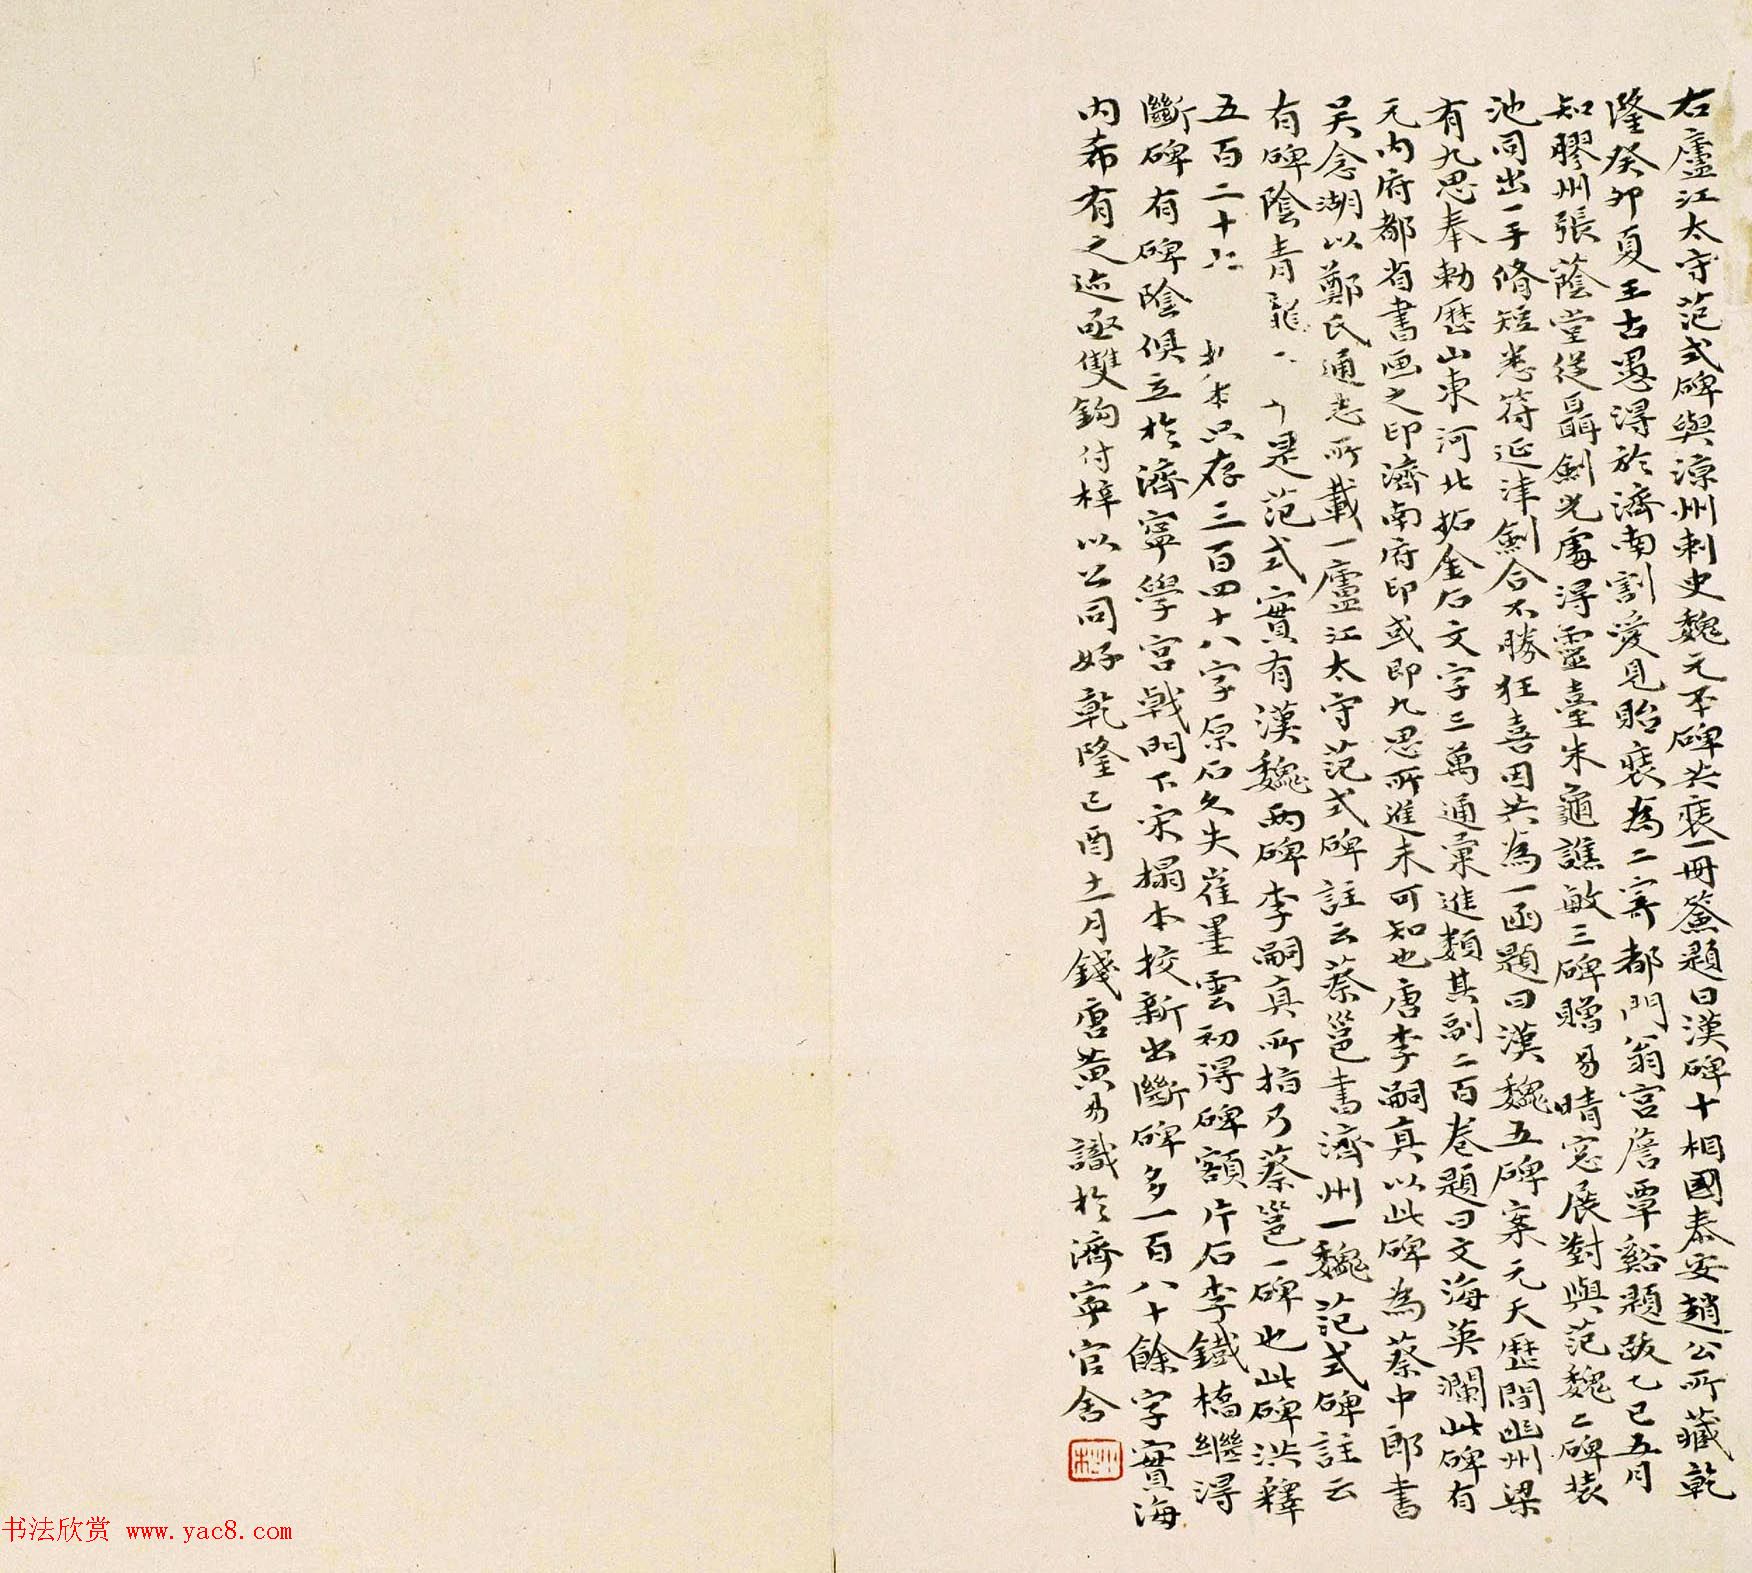 右廬江太守范式碑與涼州刺史魏元丕碑共裝一冊簽題曰漢碑十相國泰安趙公所藏乾
隆癸卯夏王古愚得於濟南割愛見貽裝為二寄都門翁宫詹覃谿題跋乙巳五月
知膠州張蔭堂從聶劍光處得靈臺朱龜譙敏三碑贈易晴窓展對與范魏二碑裝
池同出一手脩短悉符延津劍合不勝狂喜因共為一函題曰漢魏五碑案元天歷間幽州梁
有九思奉勅歷山東河北拓金石文字三萬通彙進類其副二百卷題曰文海英瀾此碑有
元內府都省書画之印濟南府印或即九思所進未可知也唐李嗣真以此碑為蔡中郎書
吴念湖以鄭氏通志所載一廬江太守范式碑註云蔡邕書濟州一魏范式碑註云
有碑陰青龍 是范式實有漢魏兩碑李嗣真所指乃蔡邕一碑也此碑洪釋
五百二十 本只存三百四十八字原石久失崔墨雲初得碑額片石李鐵橋繼得
斷碑有碑陰俱立於濟寧學宫戟門下宋搨本挍新出斷碑多一百八十餘字實海
內希有之迹亟雙鉤付梓以公同好乾隆己酉十一月錢唐黄易識於濟寧官舍
书法欣赏 www.yac8.com